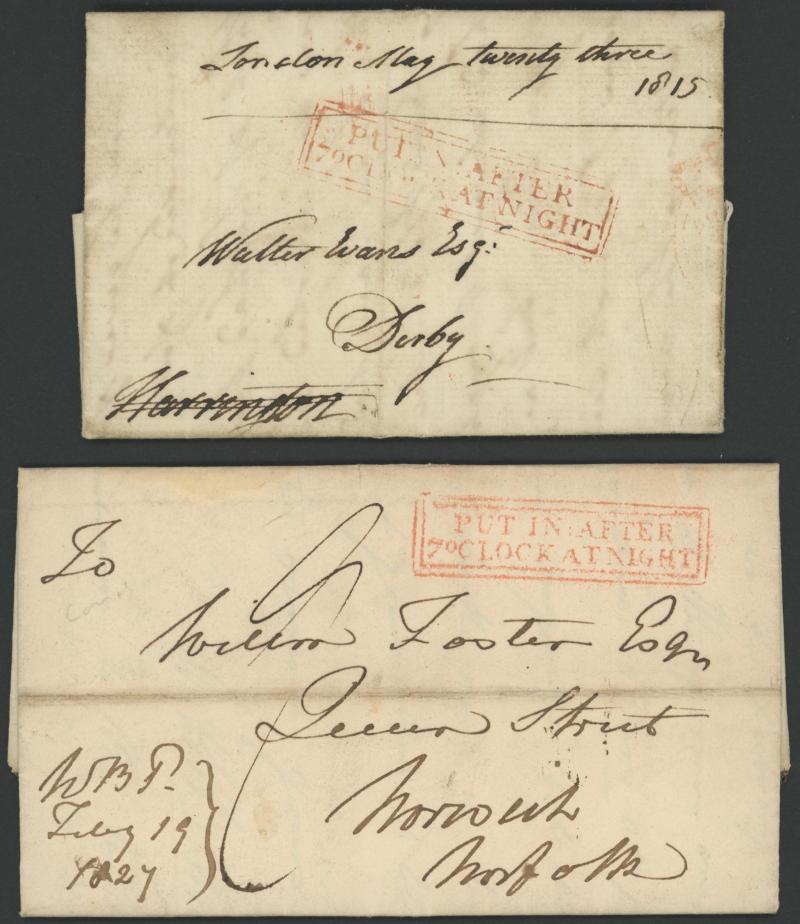 London May twenty three
1815
PUT IN AFTER
7oCLOCK AT NIGHT
Walter Evans Esqr
Derby
Harrington
PUT IN:AFTER
7oCLOCK AT NIGHT
To
Willm Foster Esqr
Queen Street
Norwich
Norfolk
Feby 19
1827